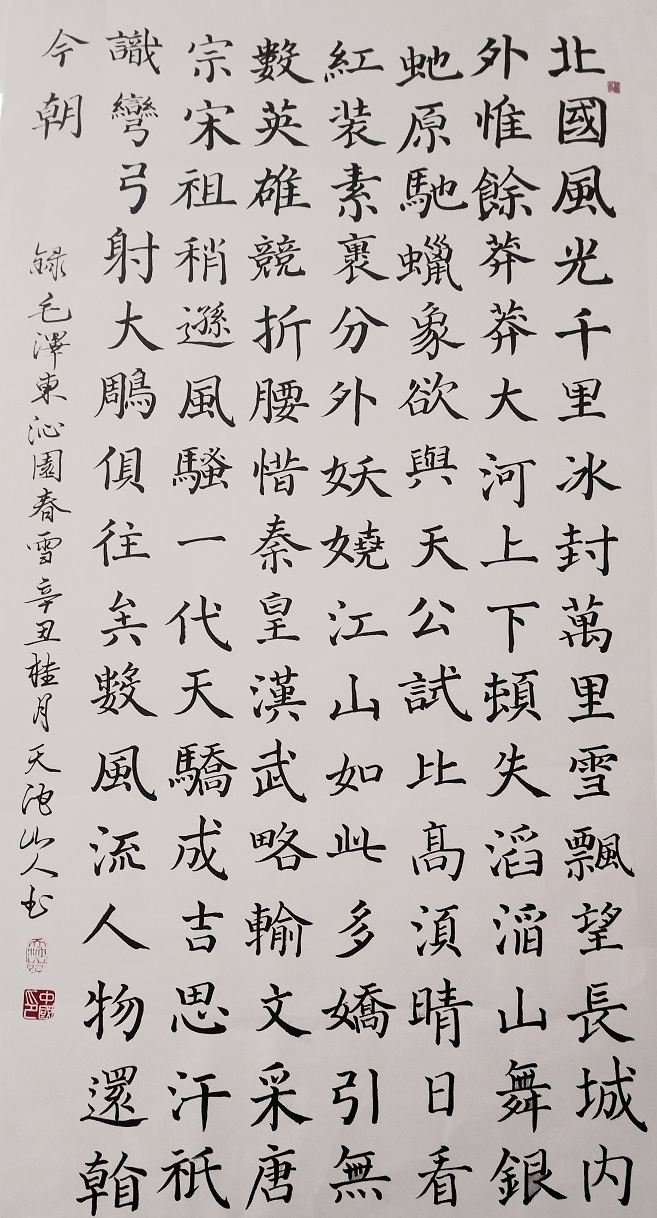 北國風光千里冰封萬里雪飄望長城内
外惟餘莽莽大河上下頓失滔滔山舞銀
虵原馳蠟象欲與天公試比髙湏晴日看
紅装素裹分外妖嬈江山如此多嬌引無
數英雄競折腰惜秦皇漢武略輸文采唐
宗宋祖稍遜風騷一代天驕成吉思汗祇
識彎弓射大鵰俱往矣數風流人物還
今朝
録毛澤東沁園春雪辛丑桂月天池山人书